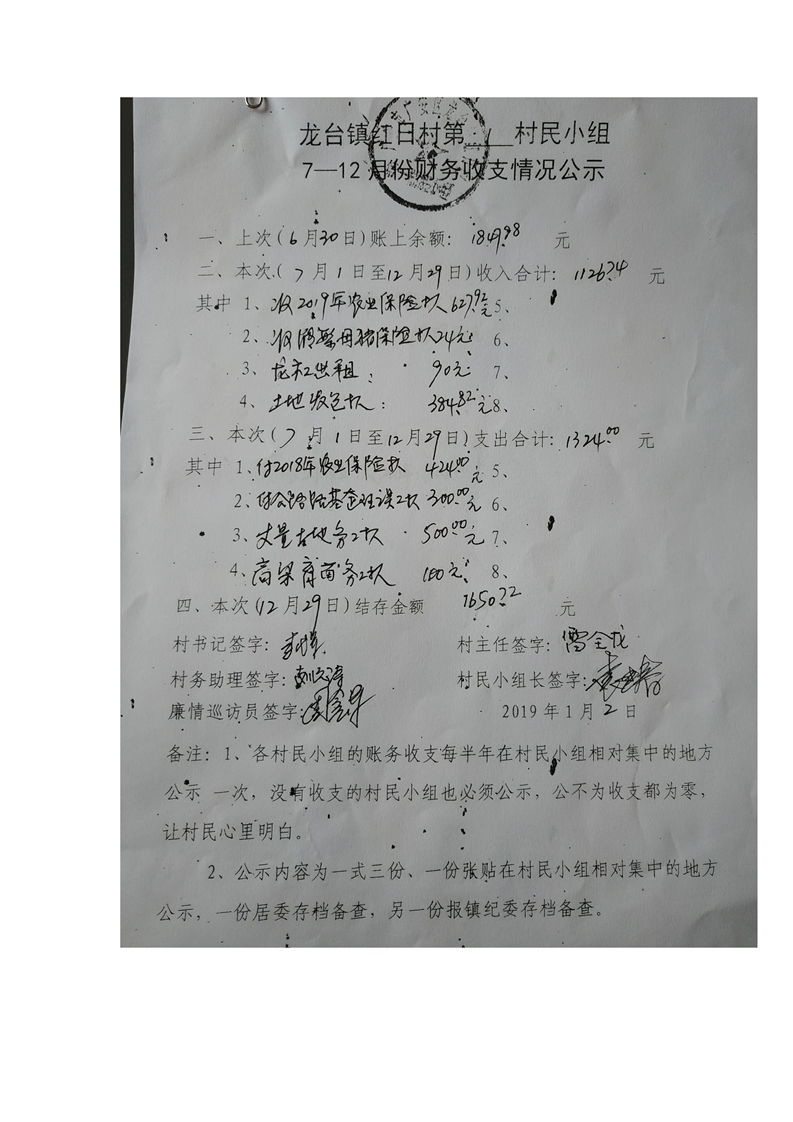 龙台镇红日村第 1 村民小组
7—12月份财务收支情况公示
一、上次(6月30日)账上余额:1849.98 元
二、本次(7月1日至12月29日)收入合计:1126.74 元
其中 1、收2019年农业保险款627.92元 5、
2、收 母猪保险款24元 6、
3、 出租: 90元 7、
4、土地发包款: 384.82元 8、
三、本次(7月1日至12月29日)支出合计:1324.00 元
其中 1、付2018年农业保险款 424.00元 5、
2、付公路路基 误工款 300.00元 6、
3、丈量土地务工款 500.00元 7、
4、高粱育苗务工款 100元 8、
四、本次(12月29日)结存金额 1650.72 元
村书记签字: 村主任签字:雷全龙
村务助理签字: 村民小组长签字:
廉情巡访员签字: 2019年1月2日
备注:1、各村民小组的账务收支每半年在村民小组相对集中的地方
公示 一次,没有收支的村民小组也必须公示,公不为收支都为零,
让村民心里明白。
2、公示内容为一式三份、一份张贴在村民小组相对集中的地方
公示,一份居委存档备查,另一份报镇纪委存档备查。